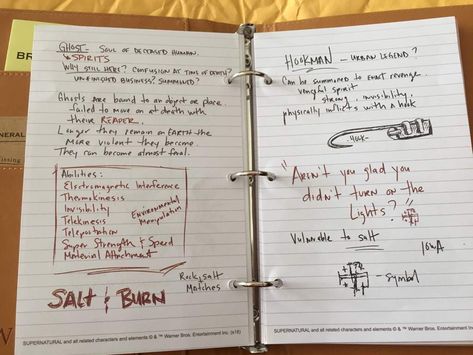 BR
GENERAL
issing
W
GHOST - SOUL OF DECEASED HUMAN.
↳ SPIRITS
WHY STILL HERE? CONFUSION AT TIME OF DEATH?
UNFINISHED BUSINESS? SUMMONED?
Ghosts are bound to an object or place.
failed to move on at death with
their REAPER.
Longer they remain on EARTH the
MORE violent they become.
They can become almost feral.
Abilities:
Electromagnetic Interference
Thermokinesis
Invisibility
Telekinesis
Teleportation
Super Strength & Speed
Material Attachment
Environmental
Manipulation
SALT & BURN
Rock salt
Matches
SUPERNATURAL and all related characters and elements © & ™ Warner Bros. Entertainment Inc. (s18)
HOOKMAN - URBAN LEGEND?
Can be summoned to exact revenge.
vengful spirit
strong, invisibility,
physically inflicts with a hook
HOOK
"Aren't you glad you
didn't turn on the
Lights?"
Vulnerable to salt
IOWA
- symbol
SUPERNATURAL and all related characters and elements © & ™ Warner Bros. Entertainment Inc. (s18)